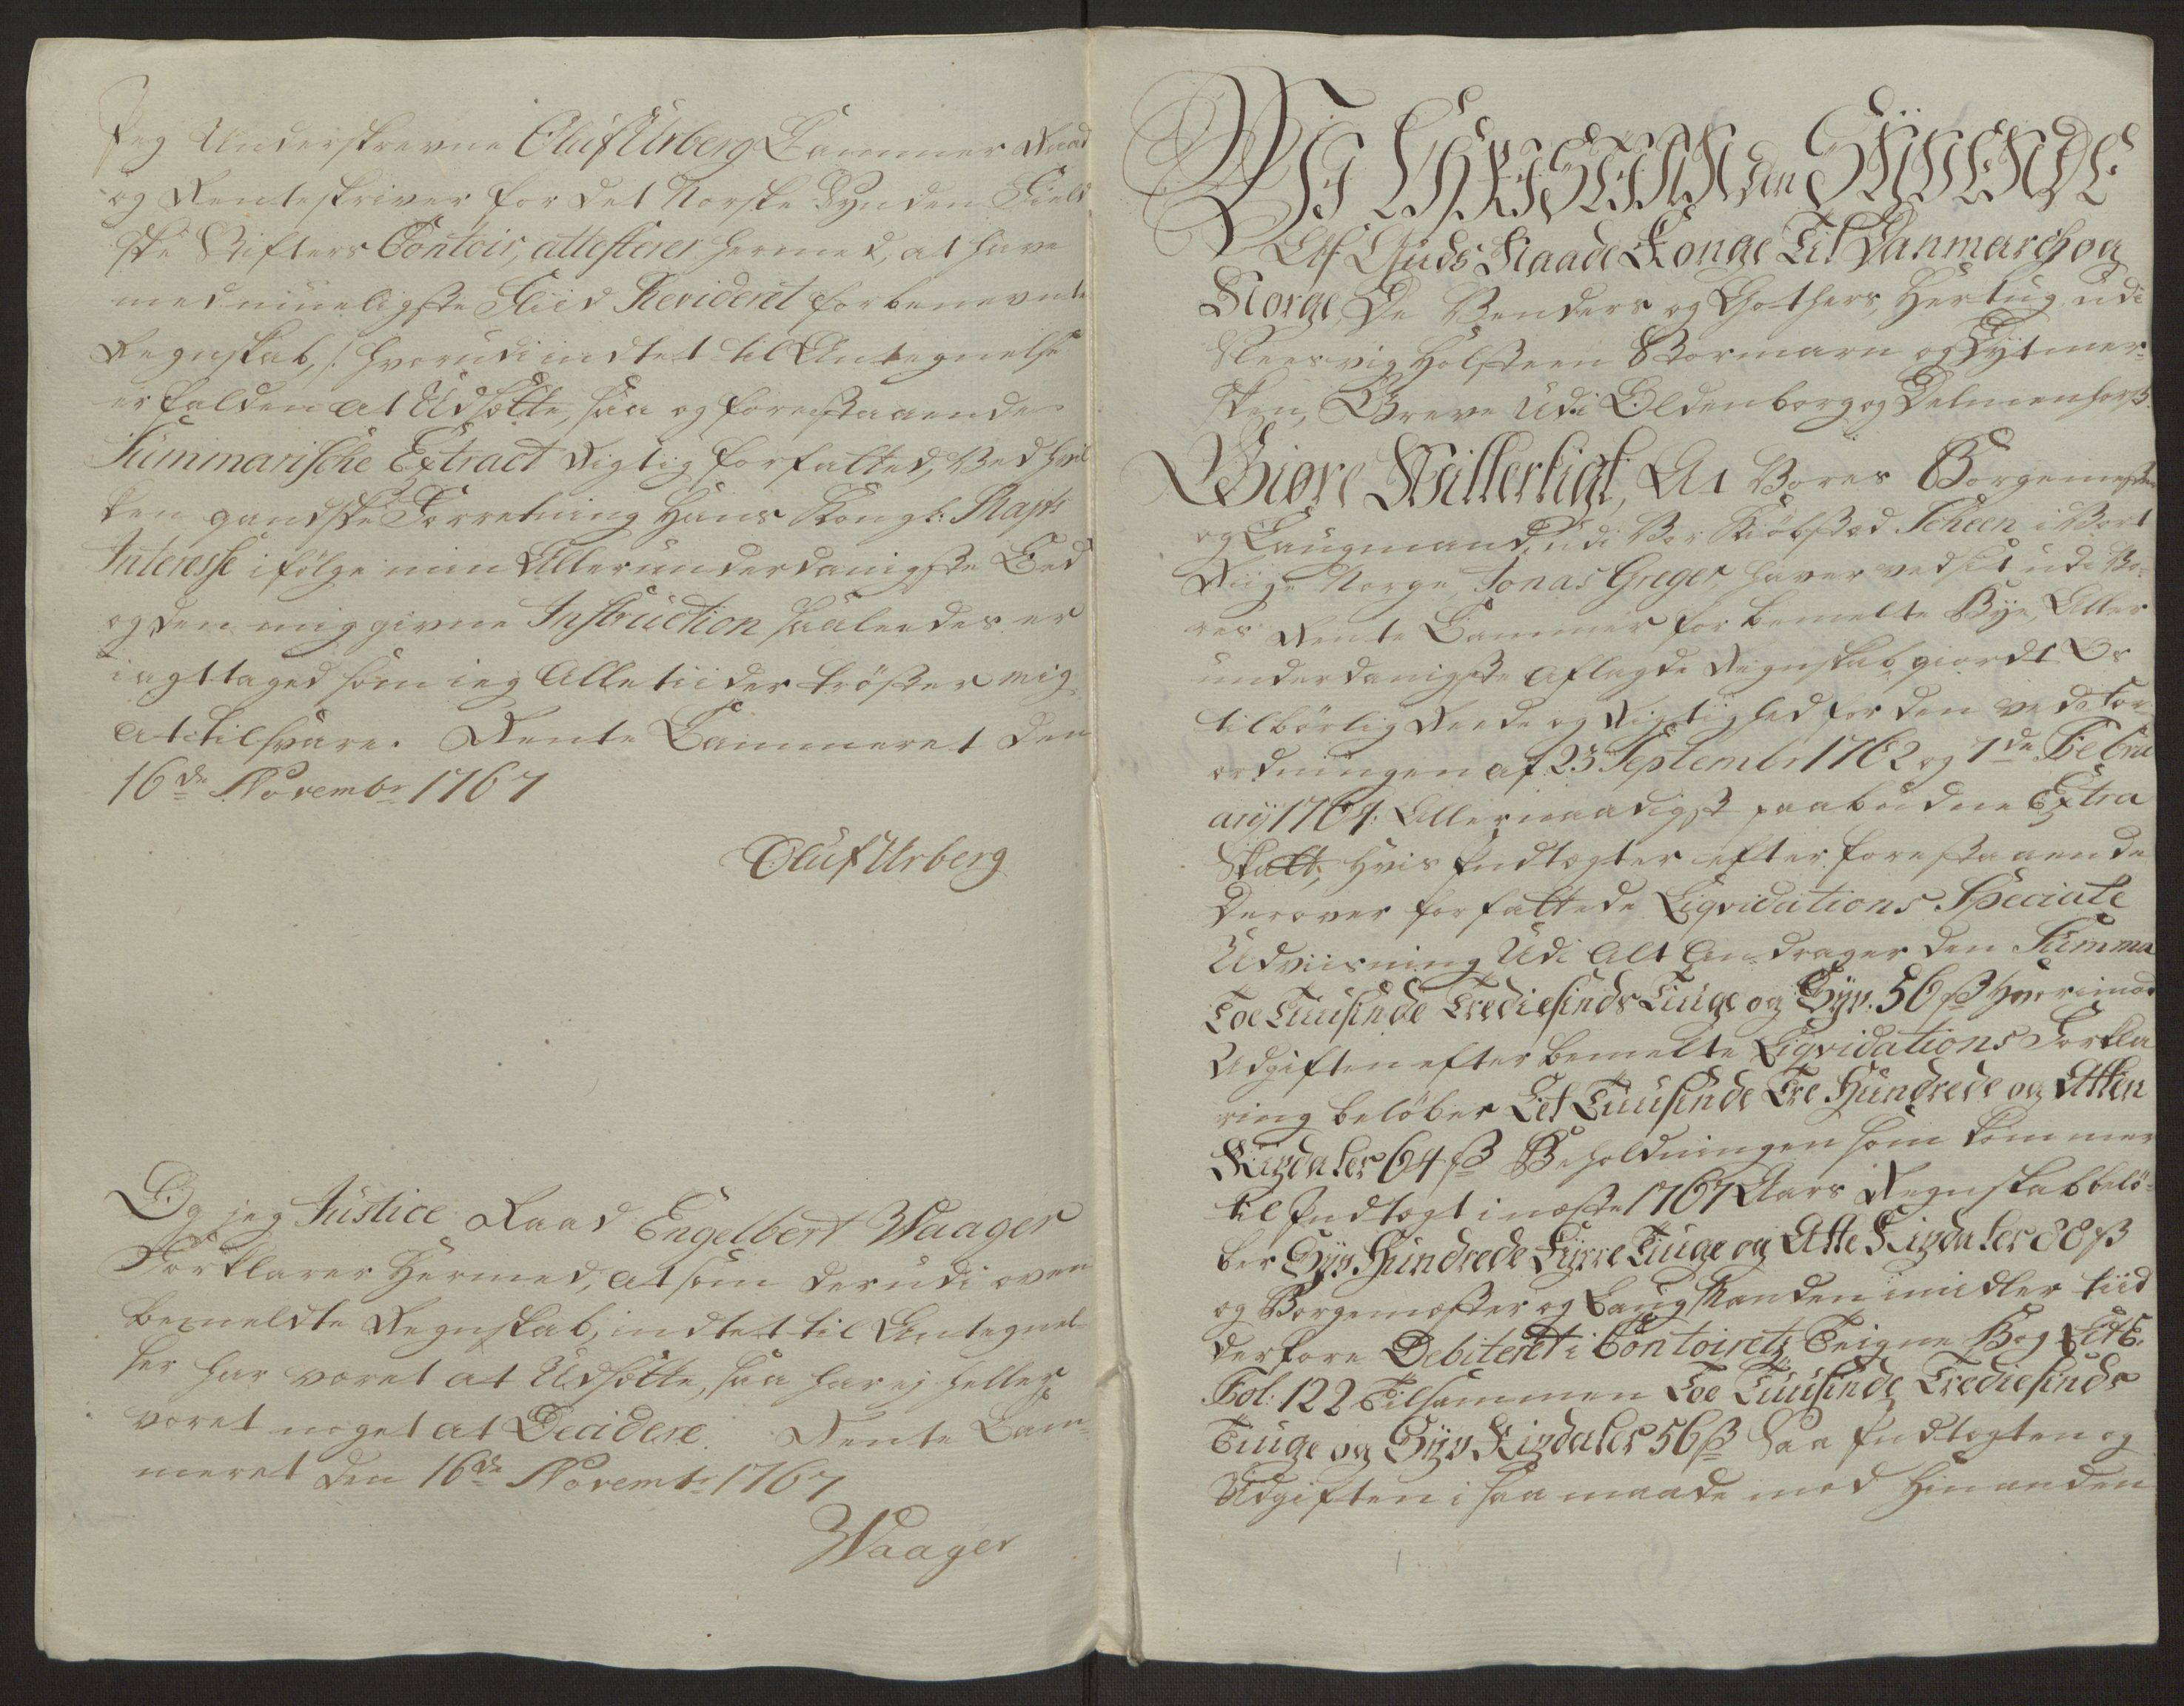 Jeg Underskrevne Oluf Urberg Cammer Raad
og Renteskriver for det Norske Synden Field
ske Stifters Contoir, attesterer hermed, at have
med mueligste Fliid Revideret forbenevnte
Regnskab, /: hvorudi indtet til Antegnelse
er falden at Udsætte, saa og forestaaende
Summarische Extract rigtig forfatted, Ved hvil
ken gandske Forretning Hans Kongl: Mayts
Interesse i følge min Allerunderdanigste Eed
og den mig givne Instruction saaleedes er
iagttaged som ieg Alletiider trøster mig
at tilsvare. Rente Cammeret den
16de Novembr 1767
Oluf Urberg
Og jeg Justice Raad Engelbert Waager
Forklarer Hermed, at som derudi oven
bemeldte Regnskab, indtet til Antegnel
ser har været at Udsætte, saa har ej heller
været noget at Decidere. Rente Cam-
meret den 16de Novembr 1767
Waager
Vi CHRISTIAN den SYVENDE
Af Guds Naade Konge Til Danmarch og
Norge, De Venders og Gothers, Hertug udi
Sleesvig Holsteen Stormarn og Dytmer-
sken, Greve Udi Oldenborg og Delmenhorst.
Giøre Witterligt, At Vores Borgemester
og Laugmand, udi Vor Kiøbsted Scheen i Vort
Riige Norge, Jonas Greger haver ved sit udi Vo-
res Rente Cammer for bemelte Bye, Aller
underdanigste aflagde Regnskab giordt Os
tilbørlig Reede og Rigtighed for den ved For-
ordningen af 23 Septembr 1762 og 7de Febru
arij 1764: Allernaadigst paabudne Extra
Skatt, Hvis Indtægter efter forestaaende
derover forfattede Liqvidations Speciale
Udviisning Udi Alt Andrager den Summa
Toe Tuusinde Trediesinds Tiuge og Syv. 56 ß Hvorimod
Udgiften efter bemelte Liqvidations Forkla
ring beløber Eet Tuusinde Tre Hundrede og Atten
Rixdaler 64 ß Beholdningen som kommer
til Indtægt i næste 1767 Aars Regnskab belø-
ber Syv Hundrede Fyrre Tiuge og Atte Rixdaler 88 ß
og Borgemester og Laug Manden imidler tiid
derfore Debiteret i Contoirets Teigne Bog Litr: E.
Fol: 122 Tilsammen Toe Tuusinde Trediesinds
Tiuge og Syv Rixdaler 56 ß Saa Indtægten og
Udgiften i saa maade mod Hinanden